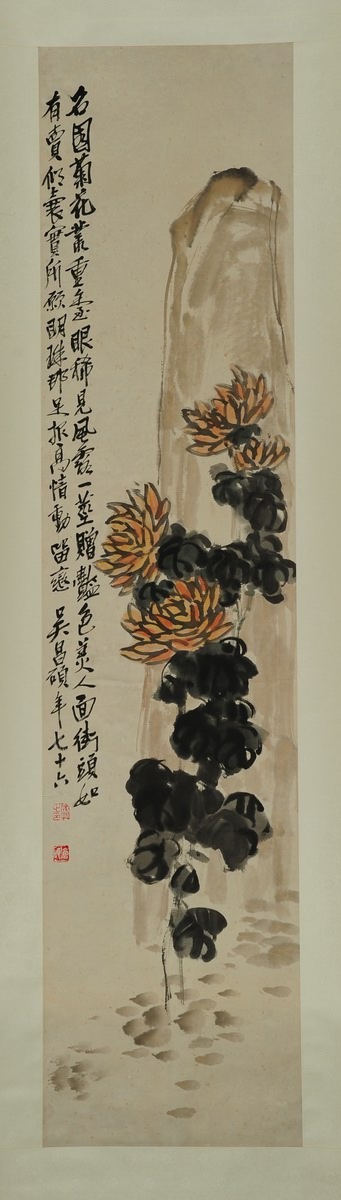 名園菊花叢重金眼稀見風露一莖贈豔色美人面街頭如
有賣傾囊實所願明珠那足報高情動留戀 吳昌碩年七十六